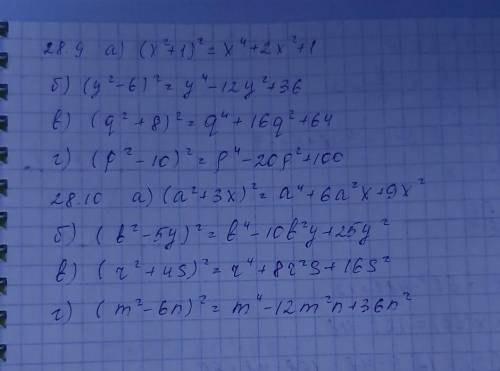 28.9 а) (x²+1)² = x⁴+2x²+1
б) (y²-6)² = y⁴-12y²+36
в) (q²+8)² = q⁴+16q²+64
г) (p²-10)² = p⁴-20p²+100
28.10 а) (a²+3x)² = a⁴+6a²x+9x²
б) (b²-5y)² = b⁴-10b²y+25y²
в) (r²+4s)² = r⁴+8r²s+16s²
г) (m²-6n)² = m⁴-12m²n+36n²